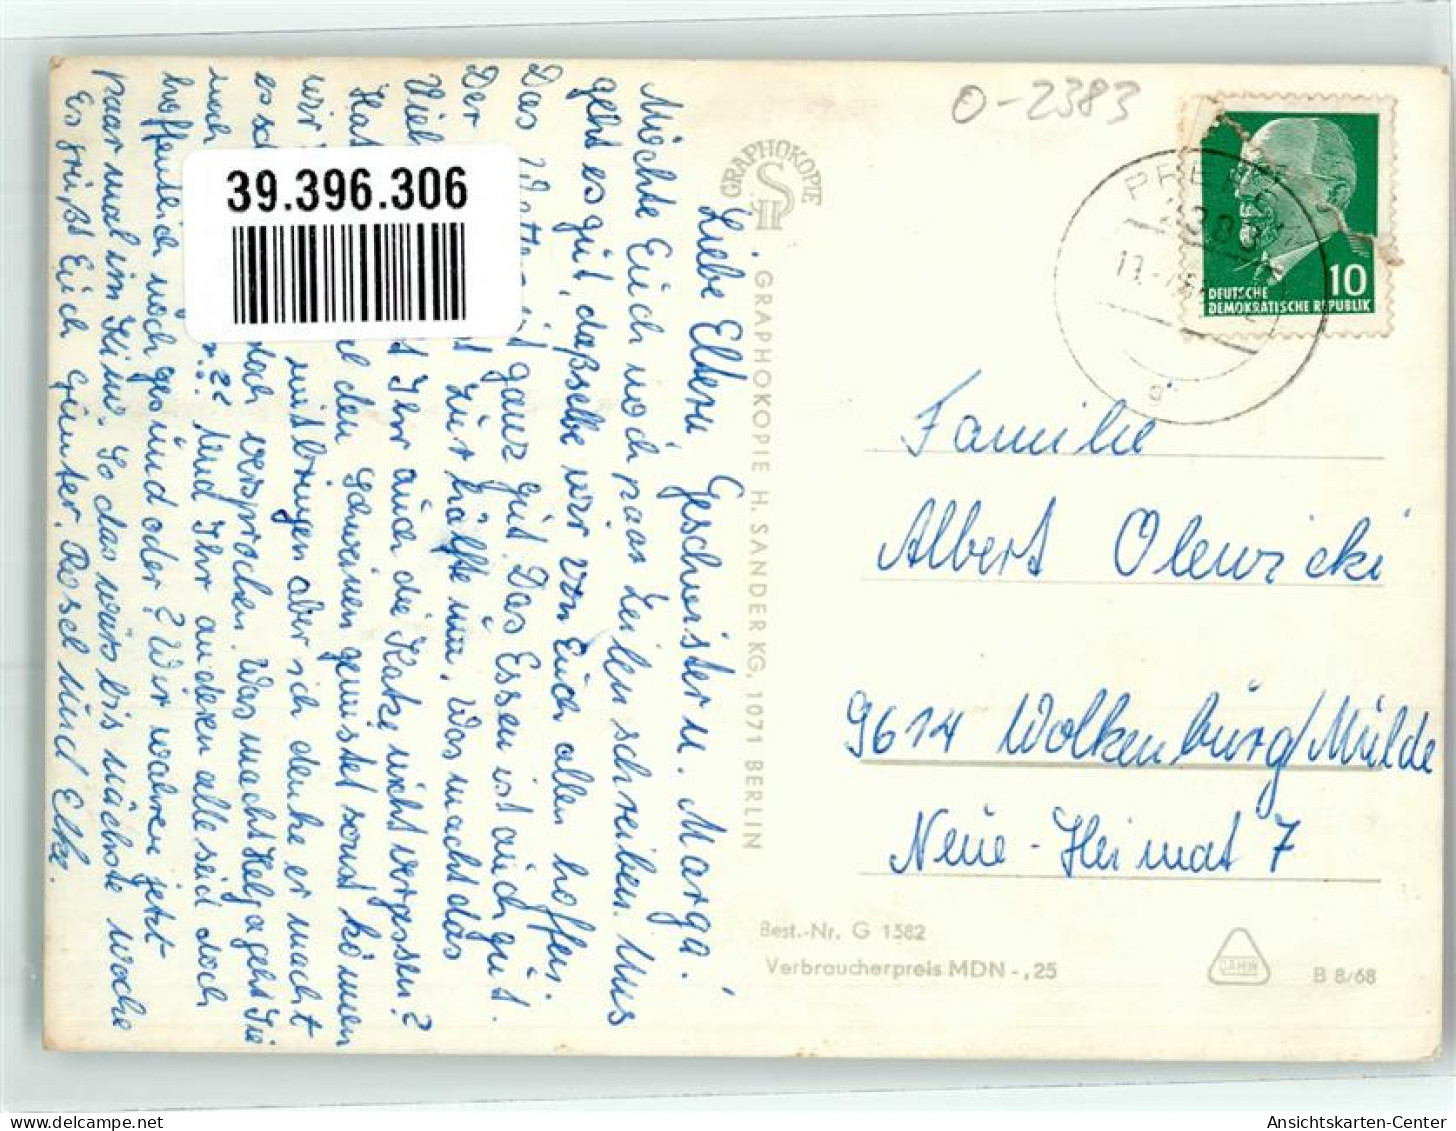 39.396.306
O-2383
PREROW
2383
GRAPHOKOPIE
GRAPHOKOPIE H. SANDER KG, 1071 BERLIN
10
DEUTSCHE
DEMOKRATISCHE REPUBLIK
Liebe Eltern, Geschwister u. Marga.
Möchte Euch noch paar Zeilen schreiben. Uns
geht es gut, daßselbe wir von Euch allen hoffen.
Das Wetter ist ganz gut. Das Essen ist auch gut.
Der zur hälfte um, Was macht das
Vieh Ihr auch die Katze nicht vergessen?
Hast den Schweinen gemistet sonst können
wir mitbringen aber ich denke er macht
es doch versprochen. Was macht Helga geht Sie
noch ?? Und Ihr anderen alle seid doch
hoffentlich noch gesund oder? Wir wahren jetzt
paar mal im Kino. So das wärs bis nächste Woche
Es grüßt Euch Günter, Rosel und Elke.
Familie
Albert Olewicki
9614 Wolkenburg/Mulde
Neue-Heimat 7
Best.-Nr. G 1582
Verbraucherpreis MDN -,25
B 8/68
Ansichtskarten-Center